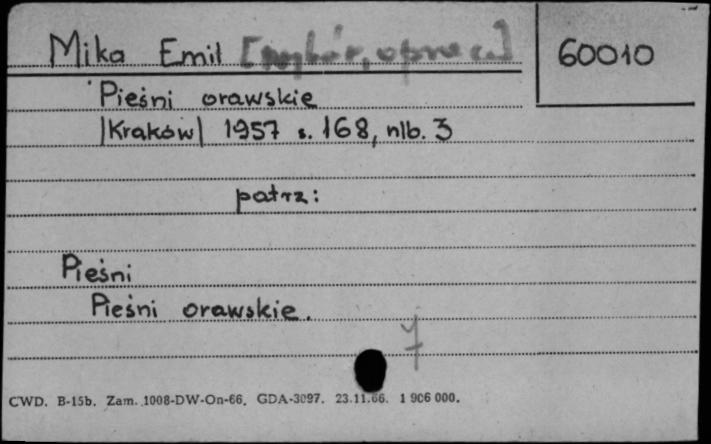 Mika Emil [wybór, oprac.]
60010
Pieśni orawskie
|Kraków| 1957 s. 168, nlb. 3
patrz:
Pieśni
Pieśni orawskie.
7
CWD. B-15b. Zam. 1008-DW-On-66. GDA-3097. 23.11.66. 1 906 000.